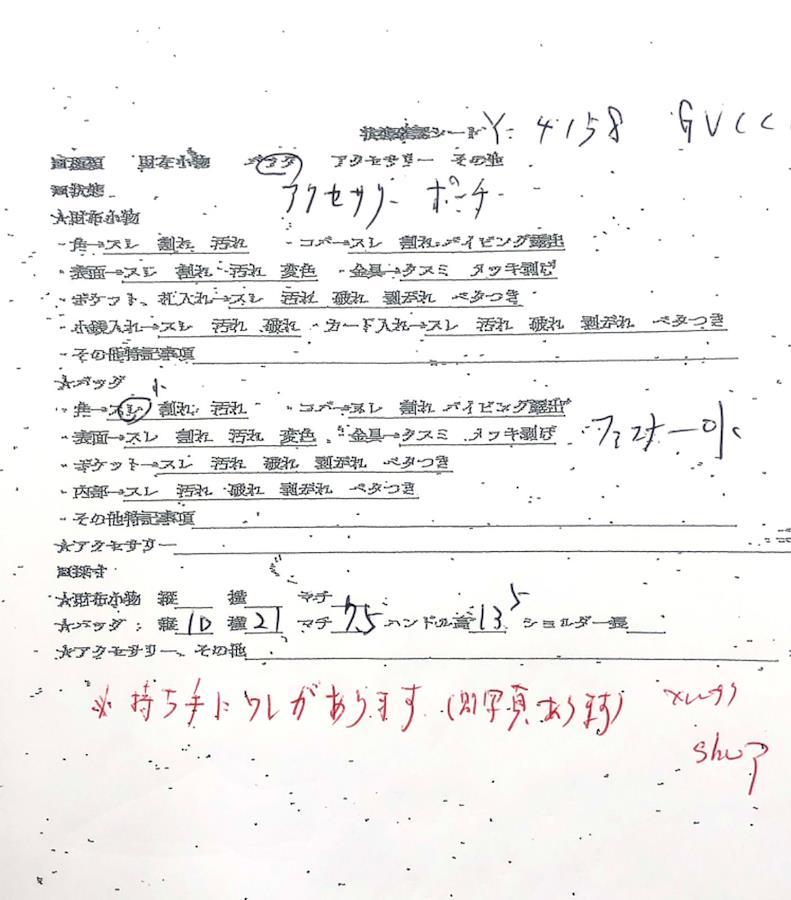 状態確認シード Y-4158 GVCC
回種類 財布小物 バッグ アクセサリー その他
回状態 アクセサリー ポーチ
★財布小物
・角→スレ 割れ 汚れ ・コバ→スレ 割れ パイピング露出
・表面→スレ 割れ 汚れ 変色 ・金具→クスミ メッキ剥げ
・ポケット、札入れ→スレ 汚れ 破れ 剥がれ ベタつき
・小銭入れ→スレ 汚れ 破れ ・カード入れ→スレ 汚れ 破れ 剥がれ ベタつき
・その他特記事項
★バッグ 小
・角→スレ 割れ 汚れ ・コバ→スレ 割れ パイピング露出
・表面→スレ 割れ 汚れ 変色 ・金具→クスミ メッキ剥げ
・ポケット→スレ 汚れ 破れ 剥がれ ベタつき
・内部→スレ 汚れ 破れ 剥がれ ベタつき
・その他特記事項
★アクセサリー
回採寸
★財布小物 縦 横 マチ
★バッグ: 縦10 横21 マチ7.5 ハンドル高13.5 ショルダー長
★アクセサリー、その他
※持ち手にワレがあります(別写真あります)